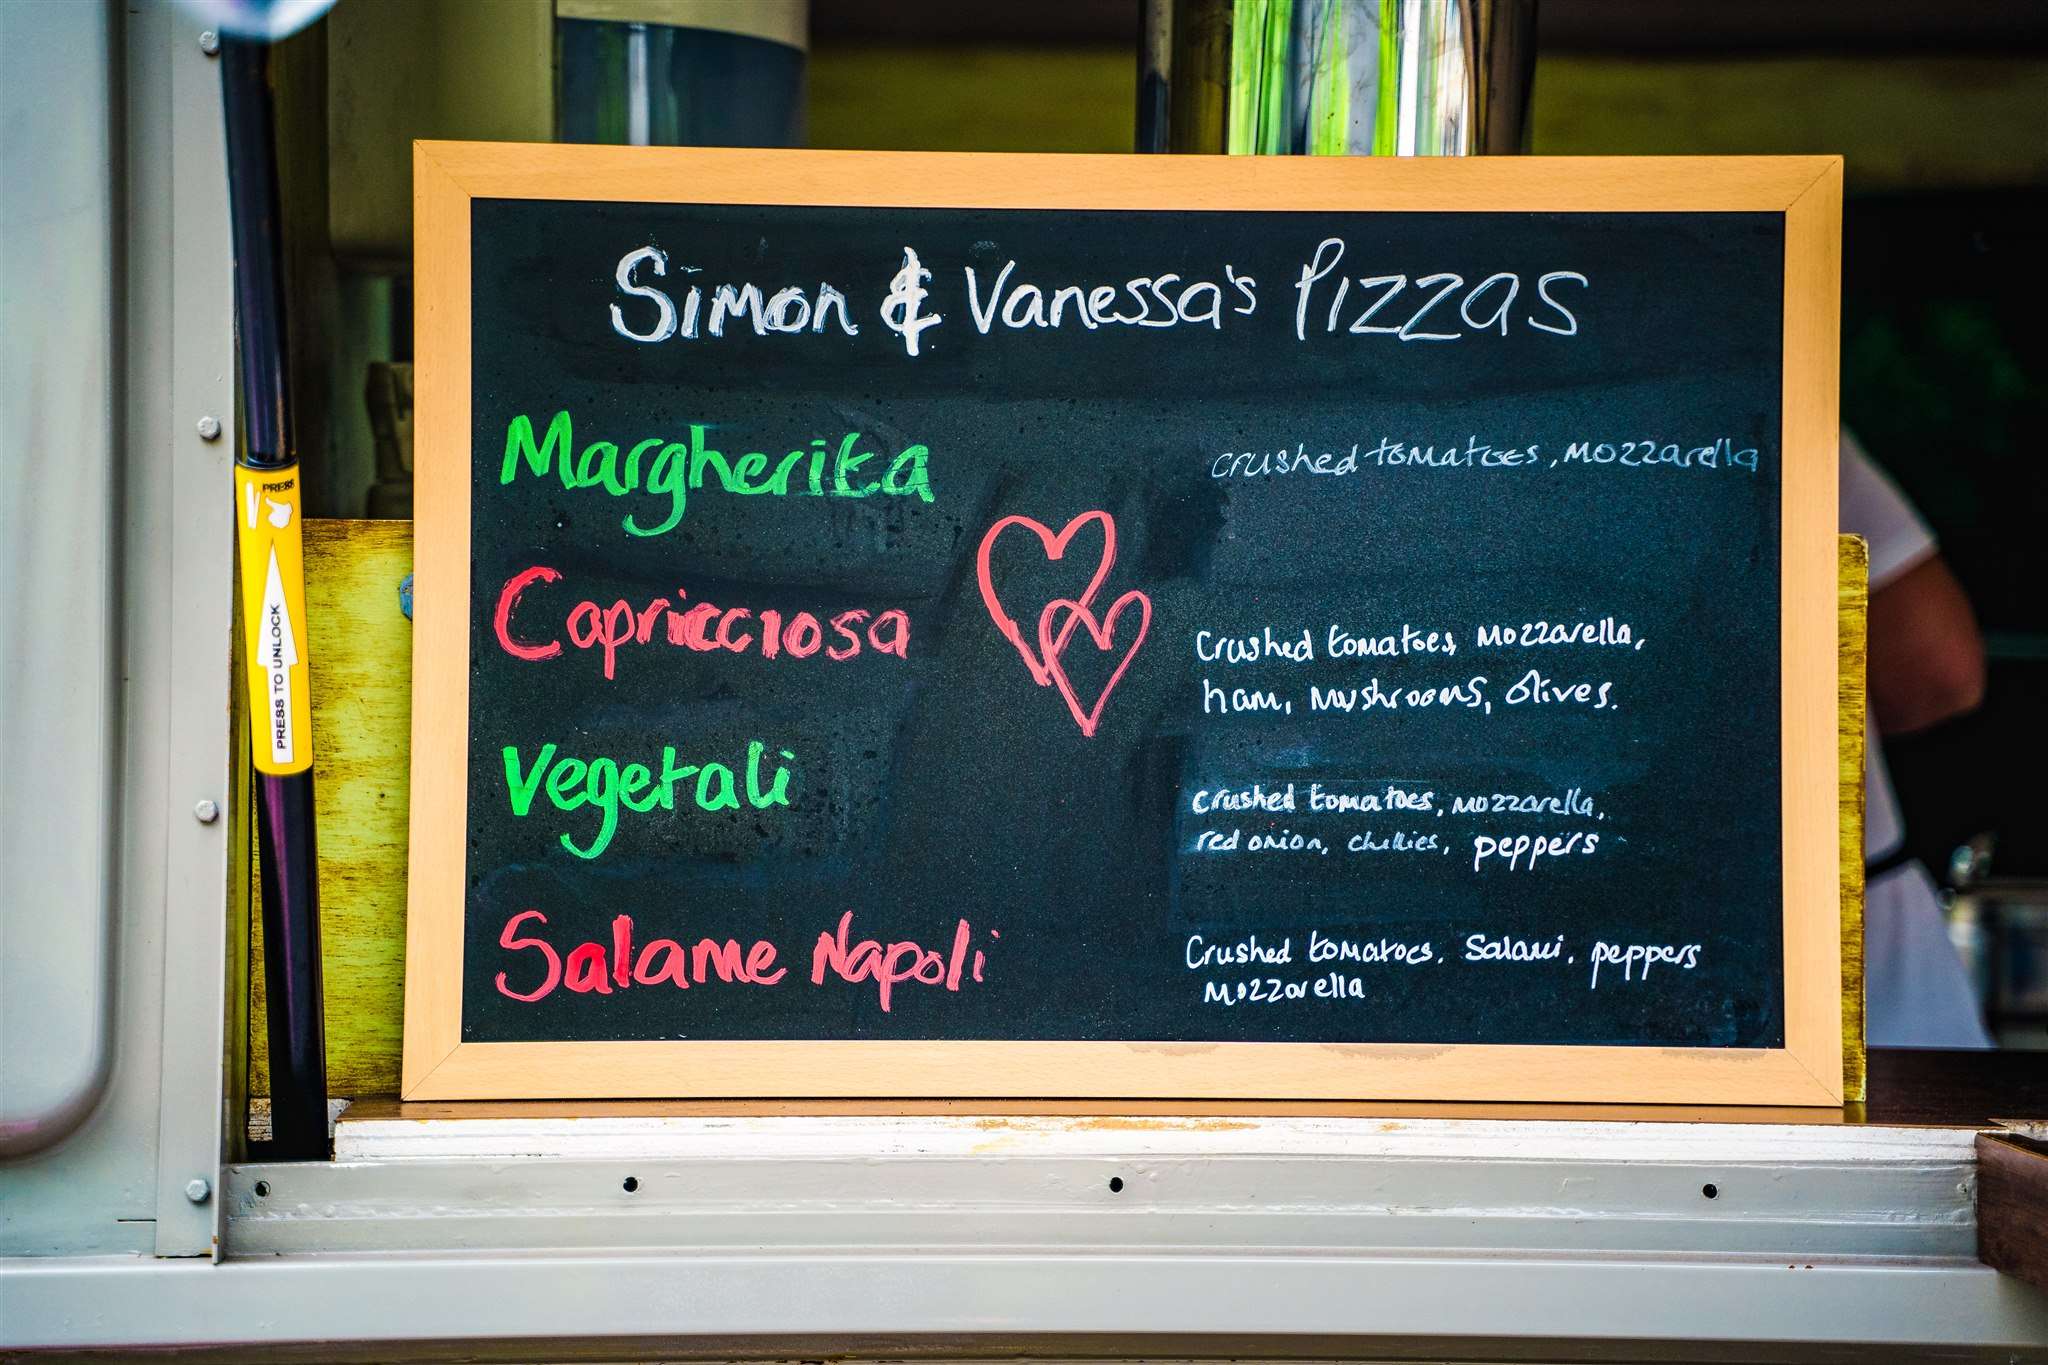 Simon & Vanessa's Pizzas
Margherita
crushed tomatoes, mozzarella
Capricciosa
Crushed tomatoes, mozzarella,
ham, mushrooms, olives.
Vegetali
crushed tomatoes, mozzarella,
red onion, chillies, peppers
Salame Napoli
Crushed tomatoes. Salami. peppers
mozzarella
PRESS
PRESS TO UNLOCK